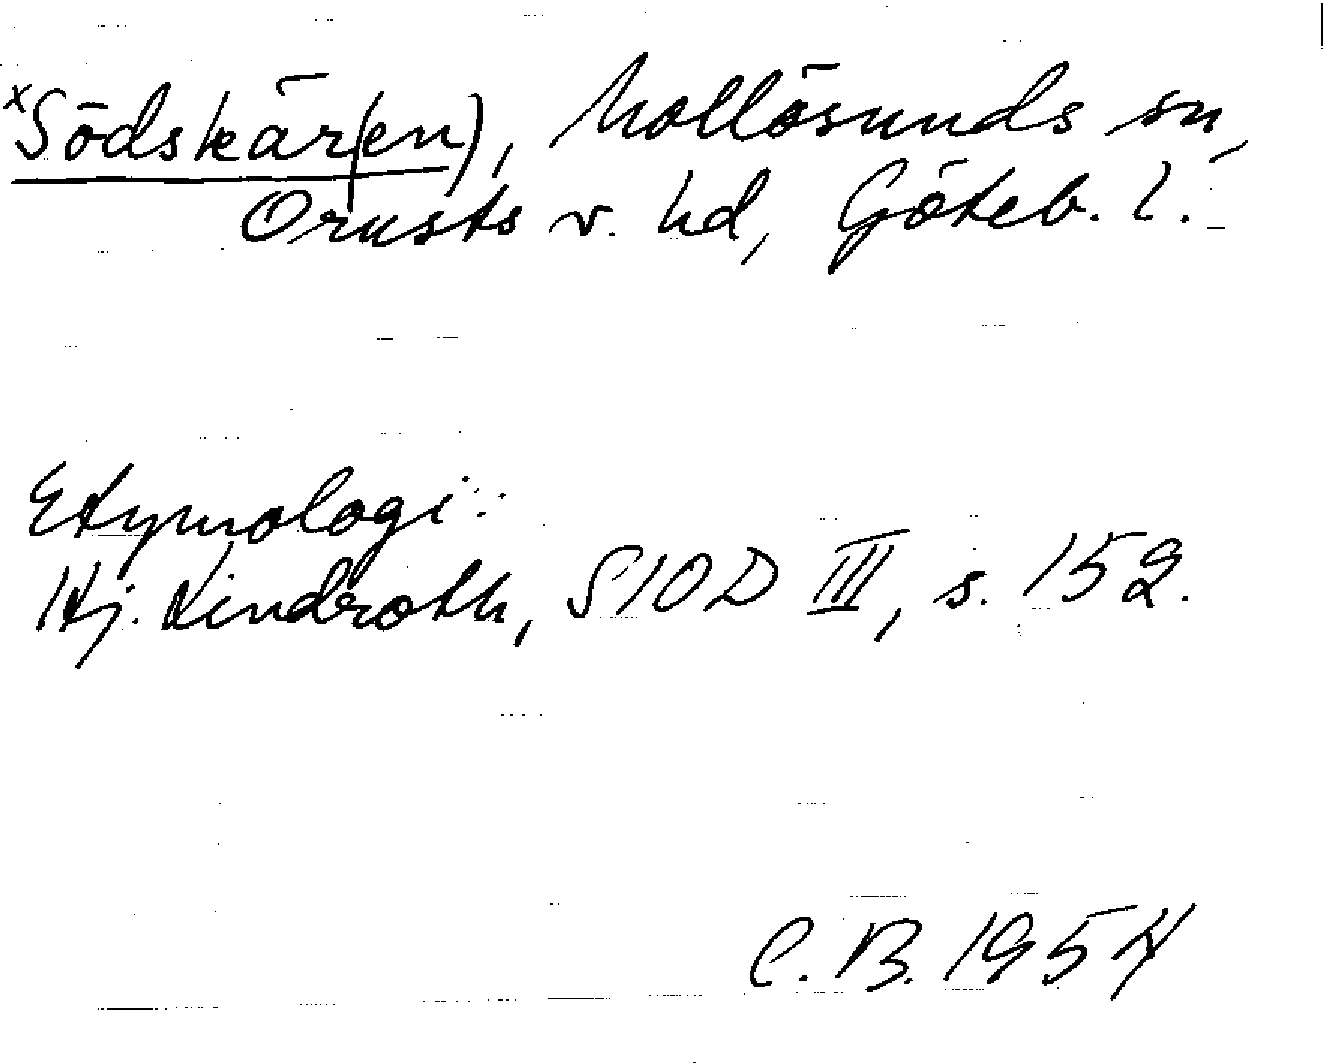 xSödskär(en), Mollösunds sn,
Orusts v. hd, Göteb. l.
Etymologi:
Hj. Lindroth, SIOD III, s. 152.
C. B. 1954